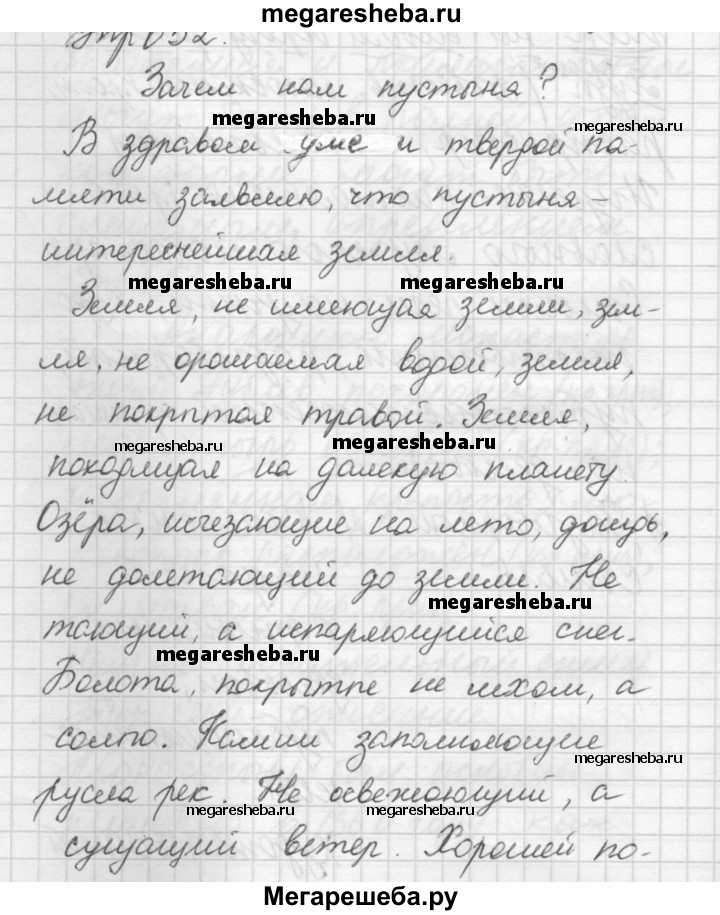 megaresheba.ru
Упр 652.
Зачем нам пустыня?
megaresheba.ru
В здравом уме и твердой па-
мяти заявляю, что пустыня -
интереснейшая земля.
megaresheba.ru megaresheba.ru
Земля, не имеющая земли, зем-
ля, не орошаемая водой, земля,
не покрытая травой. Земля,
megaresheba.ru megaresheba.ru
походящая на далекую планету.
Озёра, исчезающие на лето, дождь,
не долетающий до земли. Не
megaresheba.ru
тающий, а испаряющийся снег.
megaresheba.ru
Болота, покрытые не мхом, а
солью. Камни заполняющие
megaresheba.ru
русла рек. Не освежающий, а
megaresheba.ru megaresheba.ru
сушащий ветер. Хорошей по-
Мегарешеба.ру